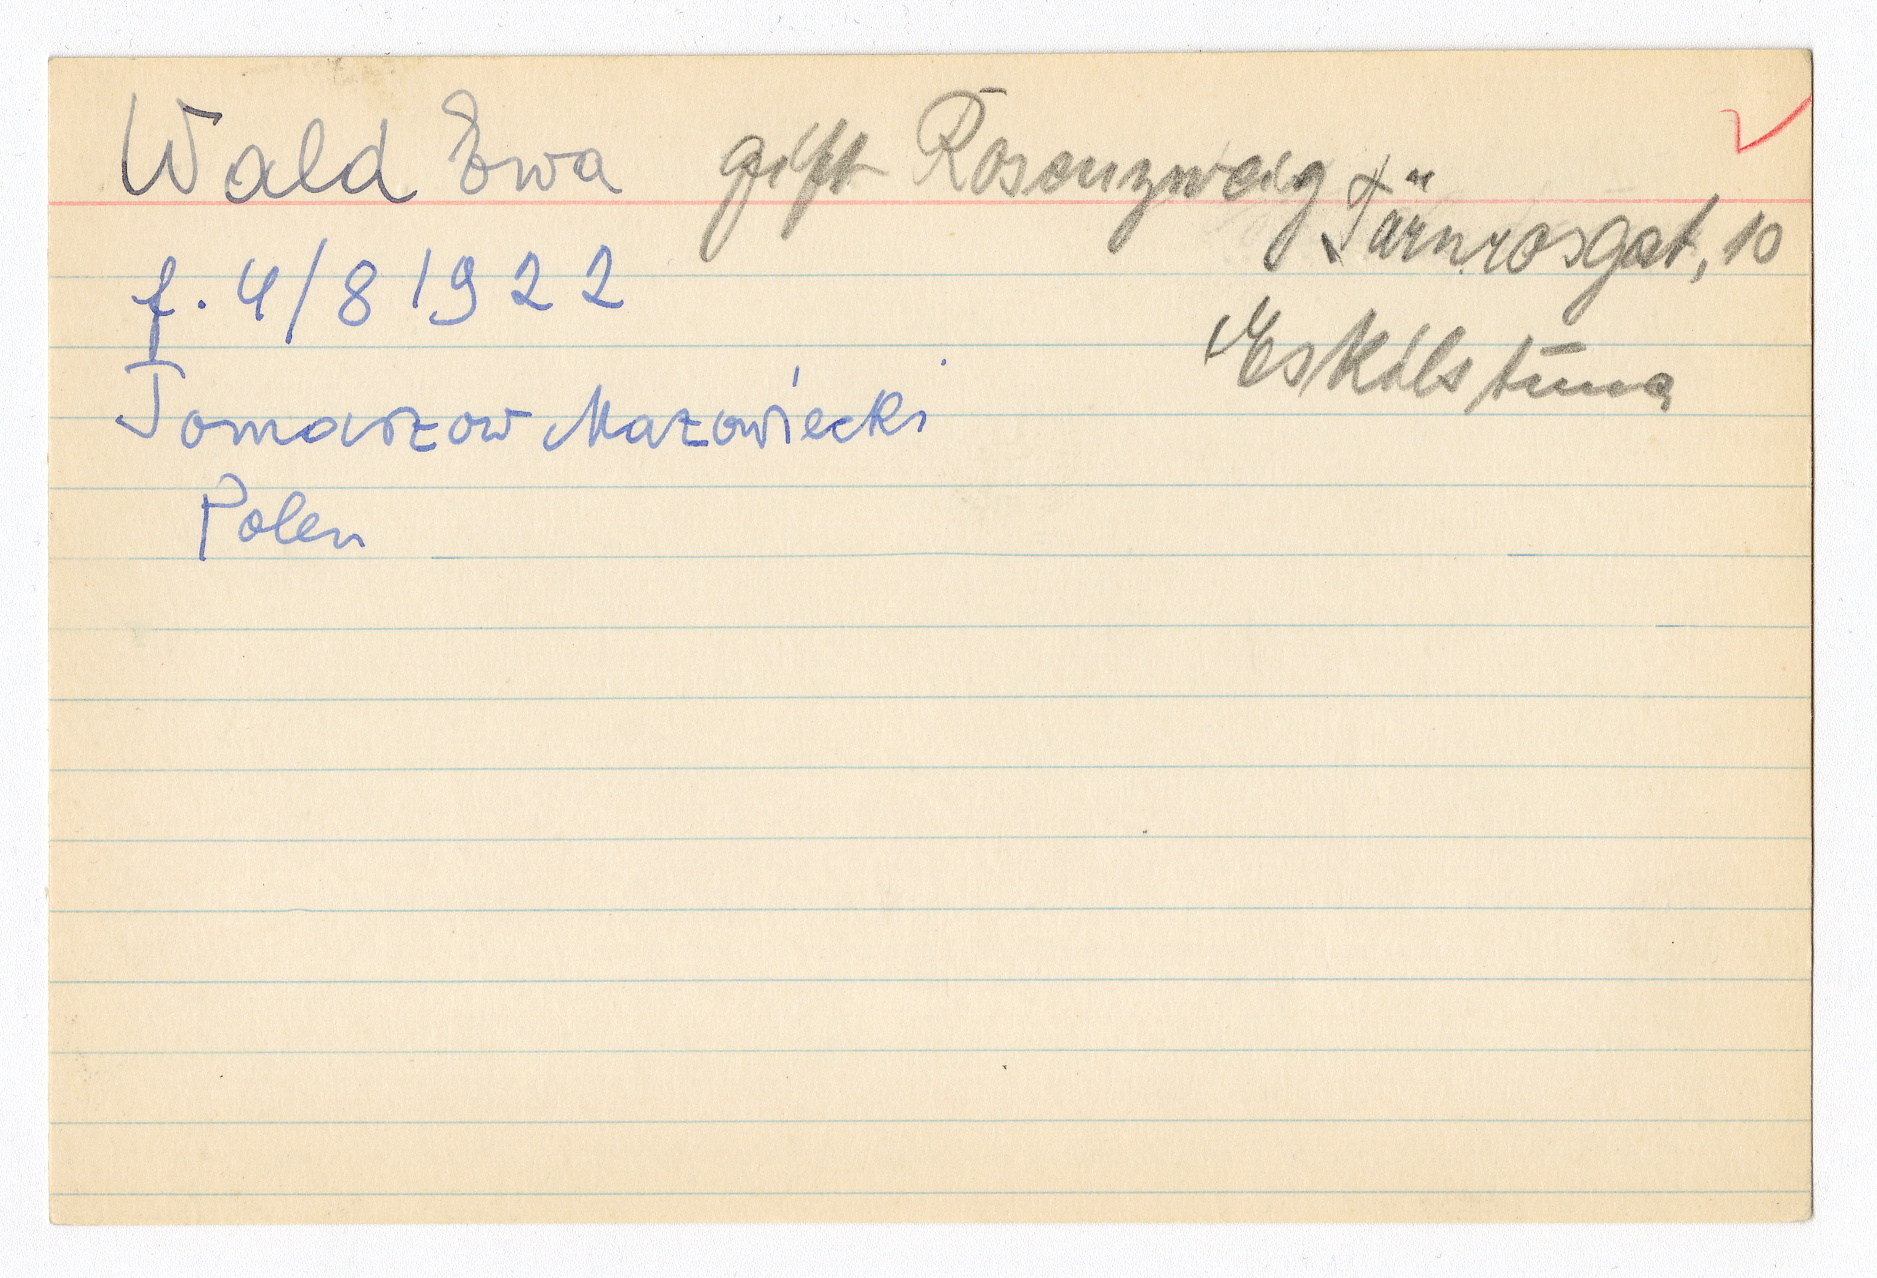 Wald Ewa gift Rosenzweig
Törnrosgat, 10
Eskilstuna
f. 4/8 1922
Tomaszow Mazowiecki
Polen